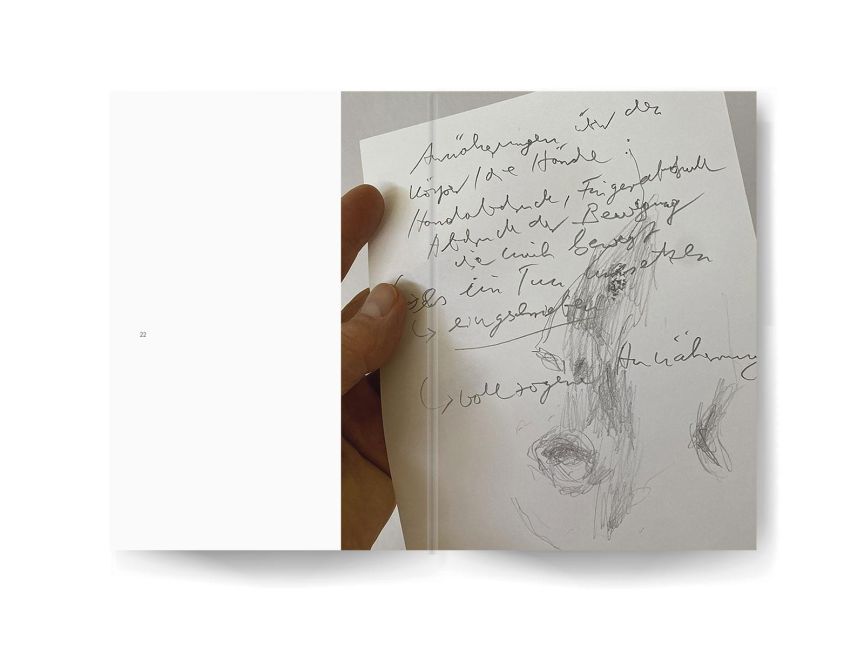 22
Annäherungen über den
Körper / die Hände :
Handabdruck, Fingerabdruck
Abdruck der Bewegung
die mich bewegt
ein Tun umsetzen
↳ eingeschrieben
↳ vollzogene Annäherung